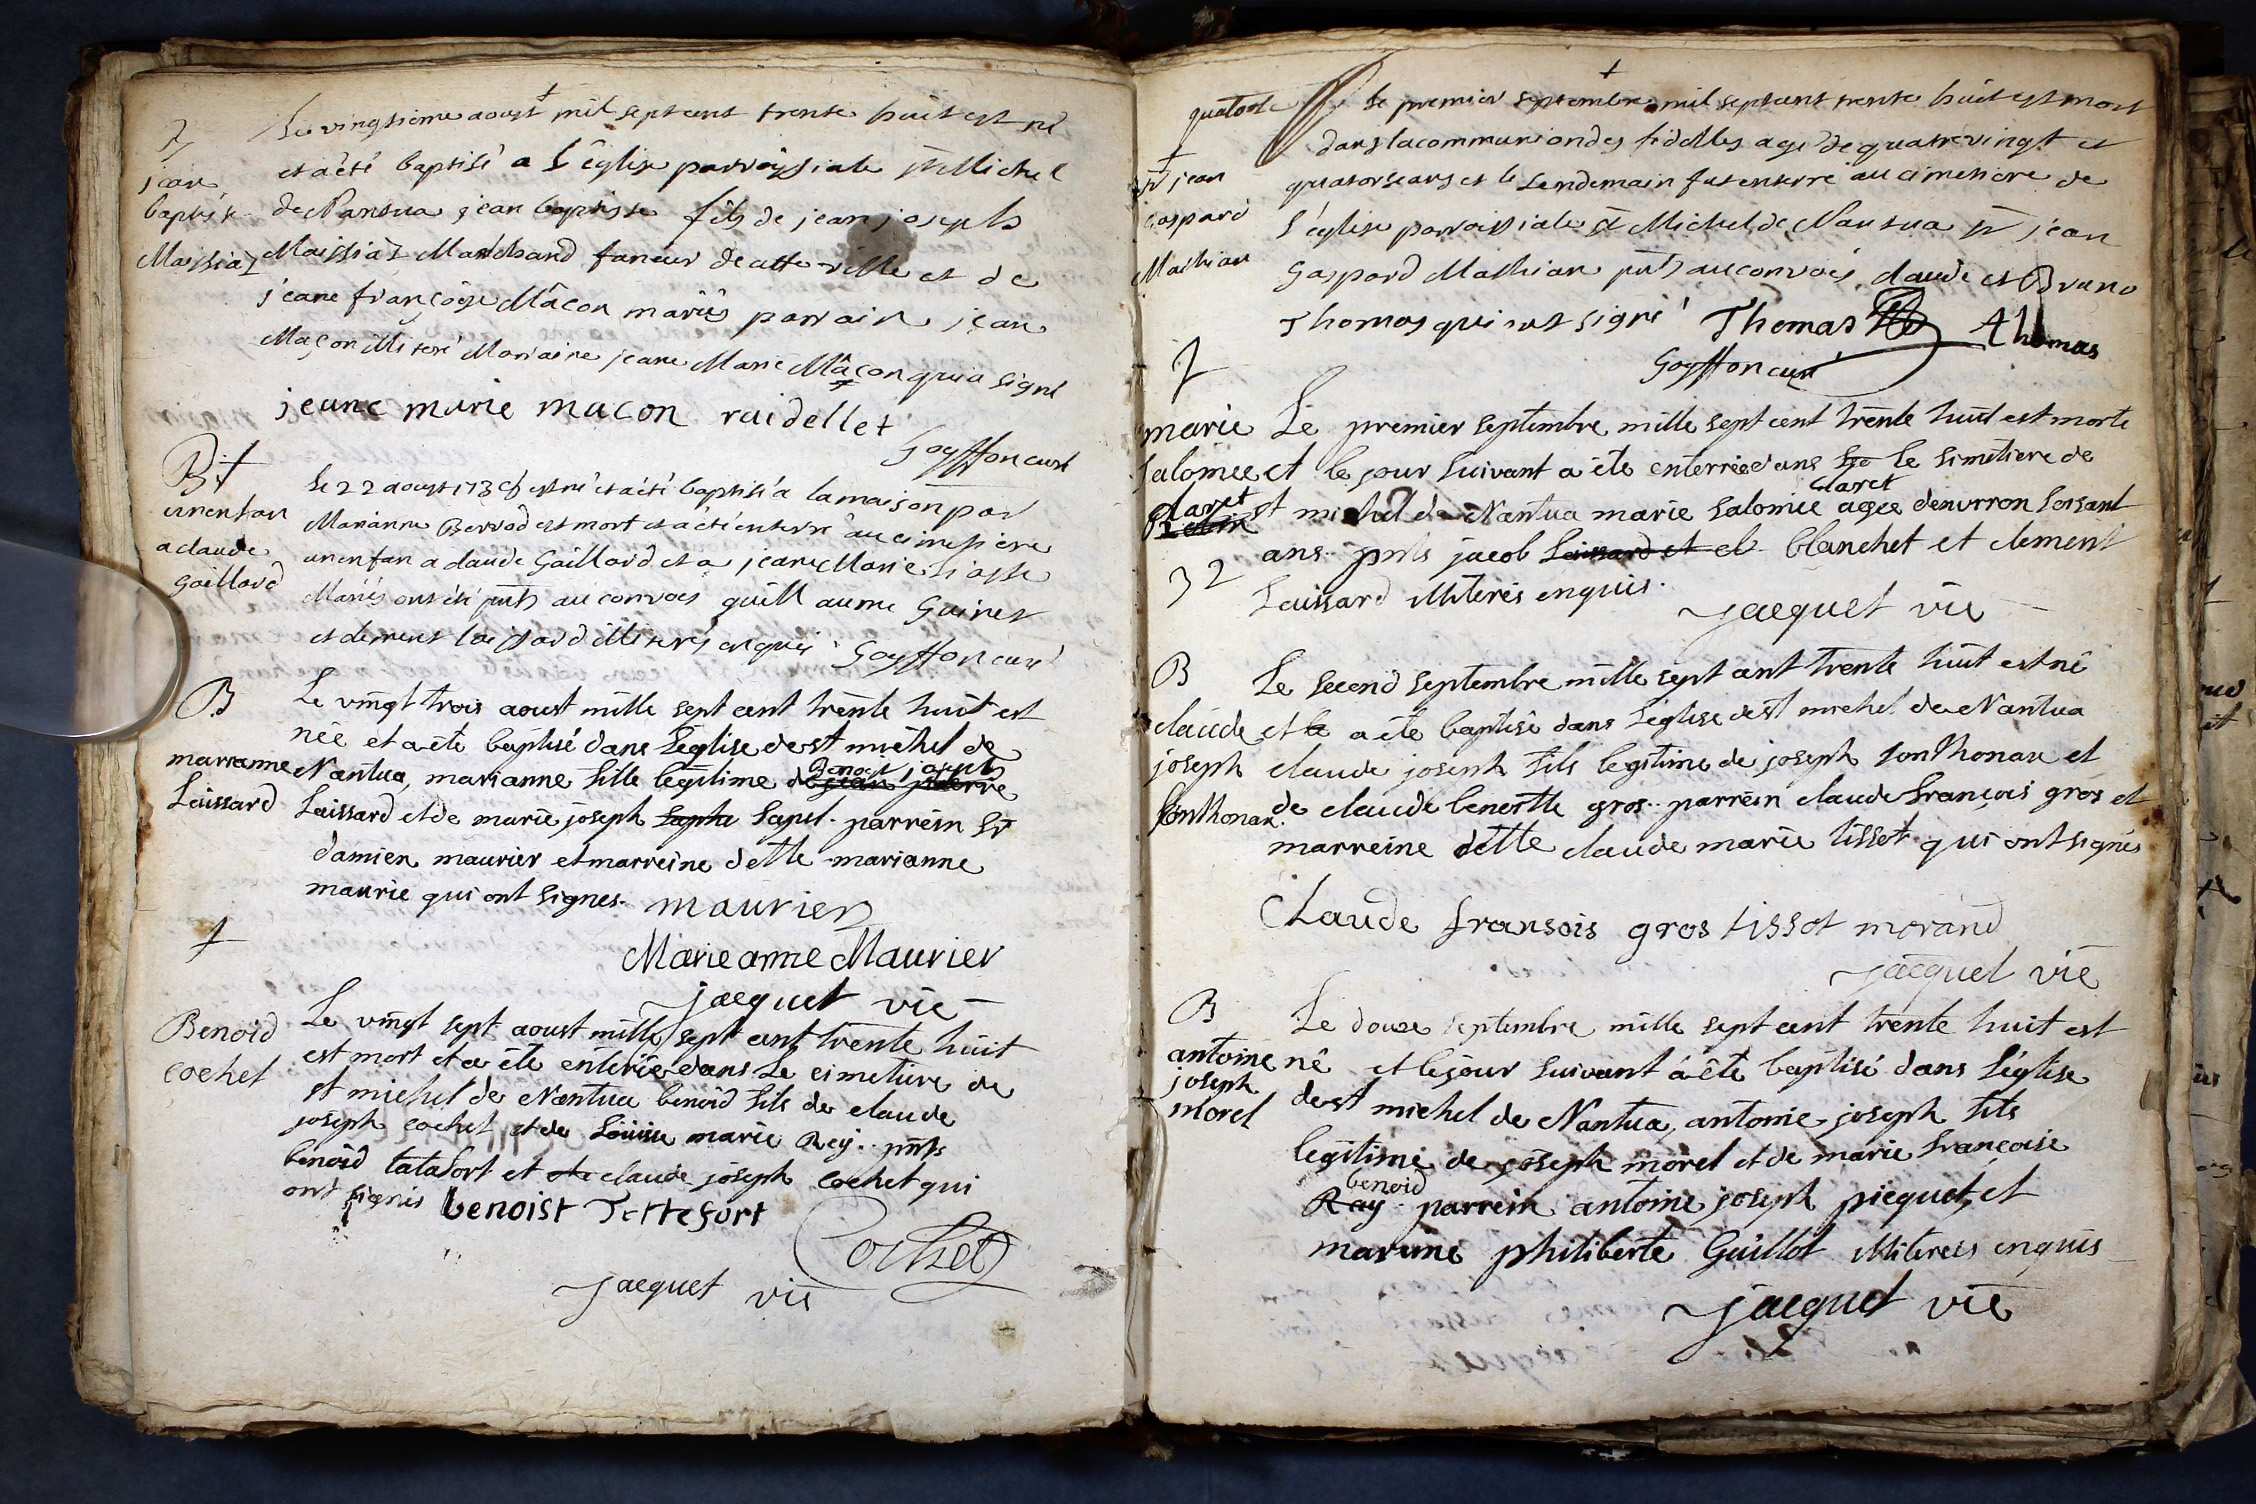 Le vingtieme aoust mil sept cent trente huit est né
jean et a été baptisé a l'église parroissiale st Michel
baptiste de Nantua jean baptiste fils de jean joseph
Maissiaz Maissiaz Marchand taneur de cette ville et de
jeane françoise Mâcon mariés parrain jean
Maçon illiteré Maraine jeane Marie Mâçon qui a signé
jeane marie macon raidellet
Goyffon curé
B †
un enfan
a claude
Gaillard
Le 22 aoust 1738 est né et a été baptisé a la maison par
Marianne Berrod est mort et a été enterré au cimetiere
un enfan a claude Gaillard et a jeane Marie
Mariés ont été pnts au convois guillaume Guinet
et clement laissard illiterés enquis Goyffon curé
B
marianne
Laissard
Le vingt trois aoust mille sept cent trente huit est
née et a été baptisé dans l'eglise de st michel de
Nantua, marianne fille legitime de benoit joseph
Laissard et de marie joseph sapet. parrein sr
damien maurier et marreine delle marianne
maurie qui ont signes. maurier
Marie anne Maurier
jacquet vic
†
Benoid
cochet
Le vingt sept aoust mille sept cent trente huit
est mort et a été enterré dans le cimetiere de
st michel de Nantua benoid fils de claude
joseph cochet et de Loüise marie Rey. pnts
benoid tatafort et claude joseph cochet qui
ont signés benoist Tettefort
Cochet
jacquet vic
†
quatorze
sr jean
gaspard
Mathian
Le premier septembre mil sept cent trente huit est mort
dans la communion des fidelles agé de quatre vingt et
quatorse ans et le lendemain fut enterré au cimetiere de
l'église parroissiale st Michel de Nantua sr jean
Gaspard Mathian pnts au convois claude et Bruno
Thomas qui ont signé Thomas Thomas
Goyffon curé
†
marie
salomee
claret
32
Le premier septembre mille sept cent trente huit est morte
et le jour suivant a été enterrée dans le simetiere de
claret
st michel de Nantua marie salomée agée denvrron soisant
ans. pnts jacob Laissard et cl blanchet et clement
Laissard illiterés enquis.
jacquet vic
B
claude
joseph
sonthonax
Le second septembre mille sept cent trente huit est né
et le a été baptisé dans l'église de st michel de Nantua
claude joseph fils legitime de joseph sonthonax et
de claude benoitte gros. parrein claude françois gros et
marreine delle claude marie tissot qui ont signés
Claude fransois gros tissot morand
jacquet vic
B
antoine
joseph
morel
Le douze septembre mille sept cent trente huit est
né et le jour suivant a été baptisé dans l'église
de st michel de Nantua, antoine joseph fils
legitime de joseph morel et de marie françoise
benoid
Ray parrein antoine joseph picquet, et
marraine philiberte Guillot illiterees enquis
jacquet vic